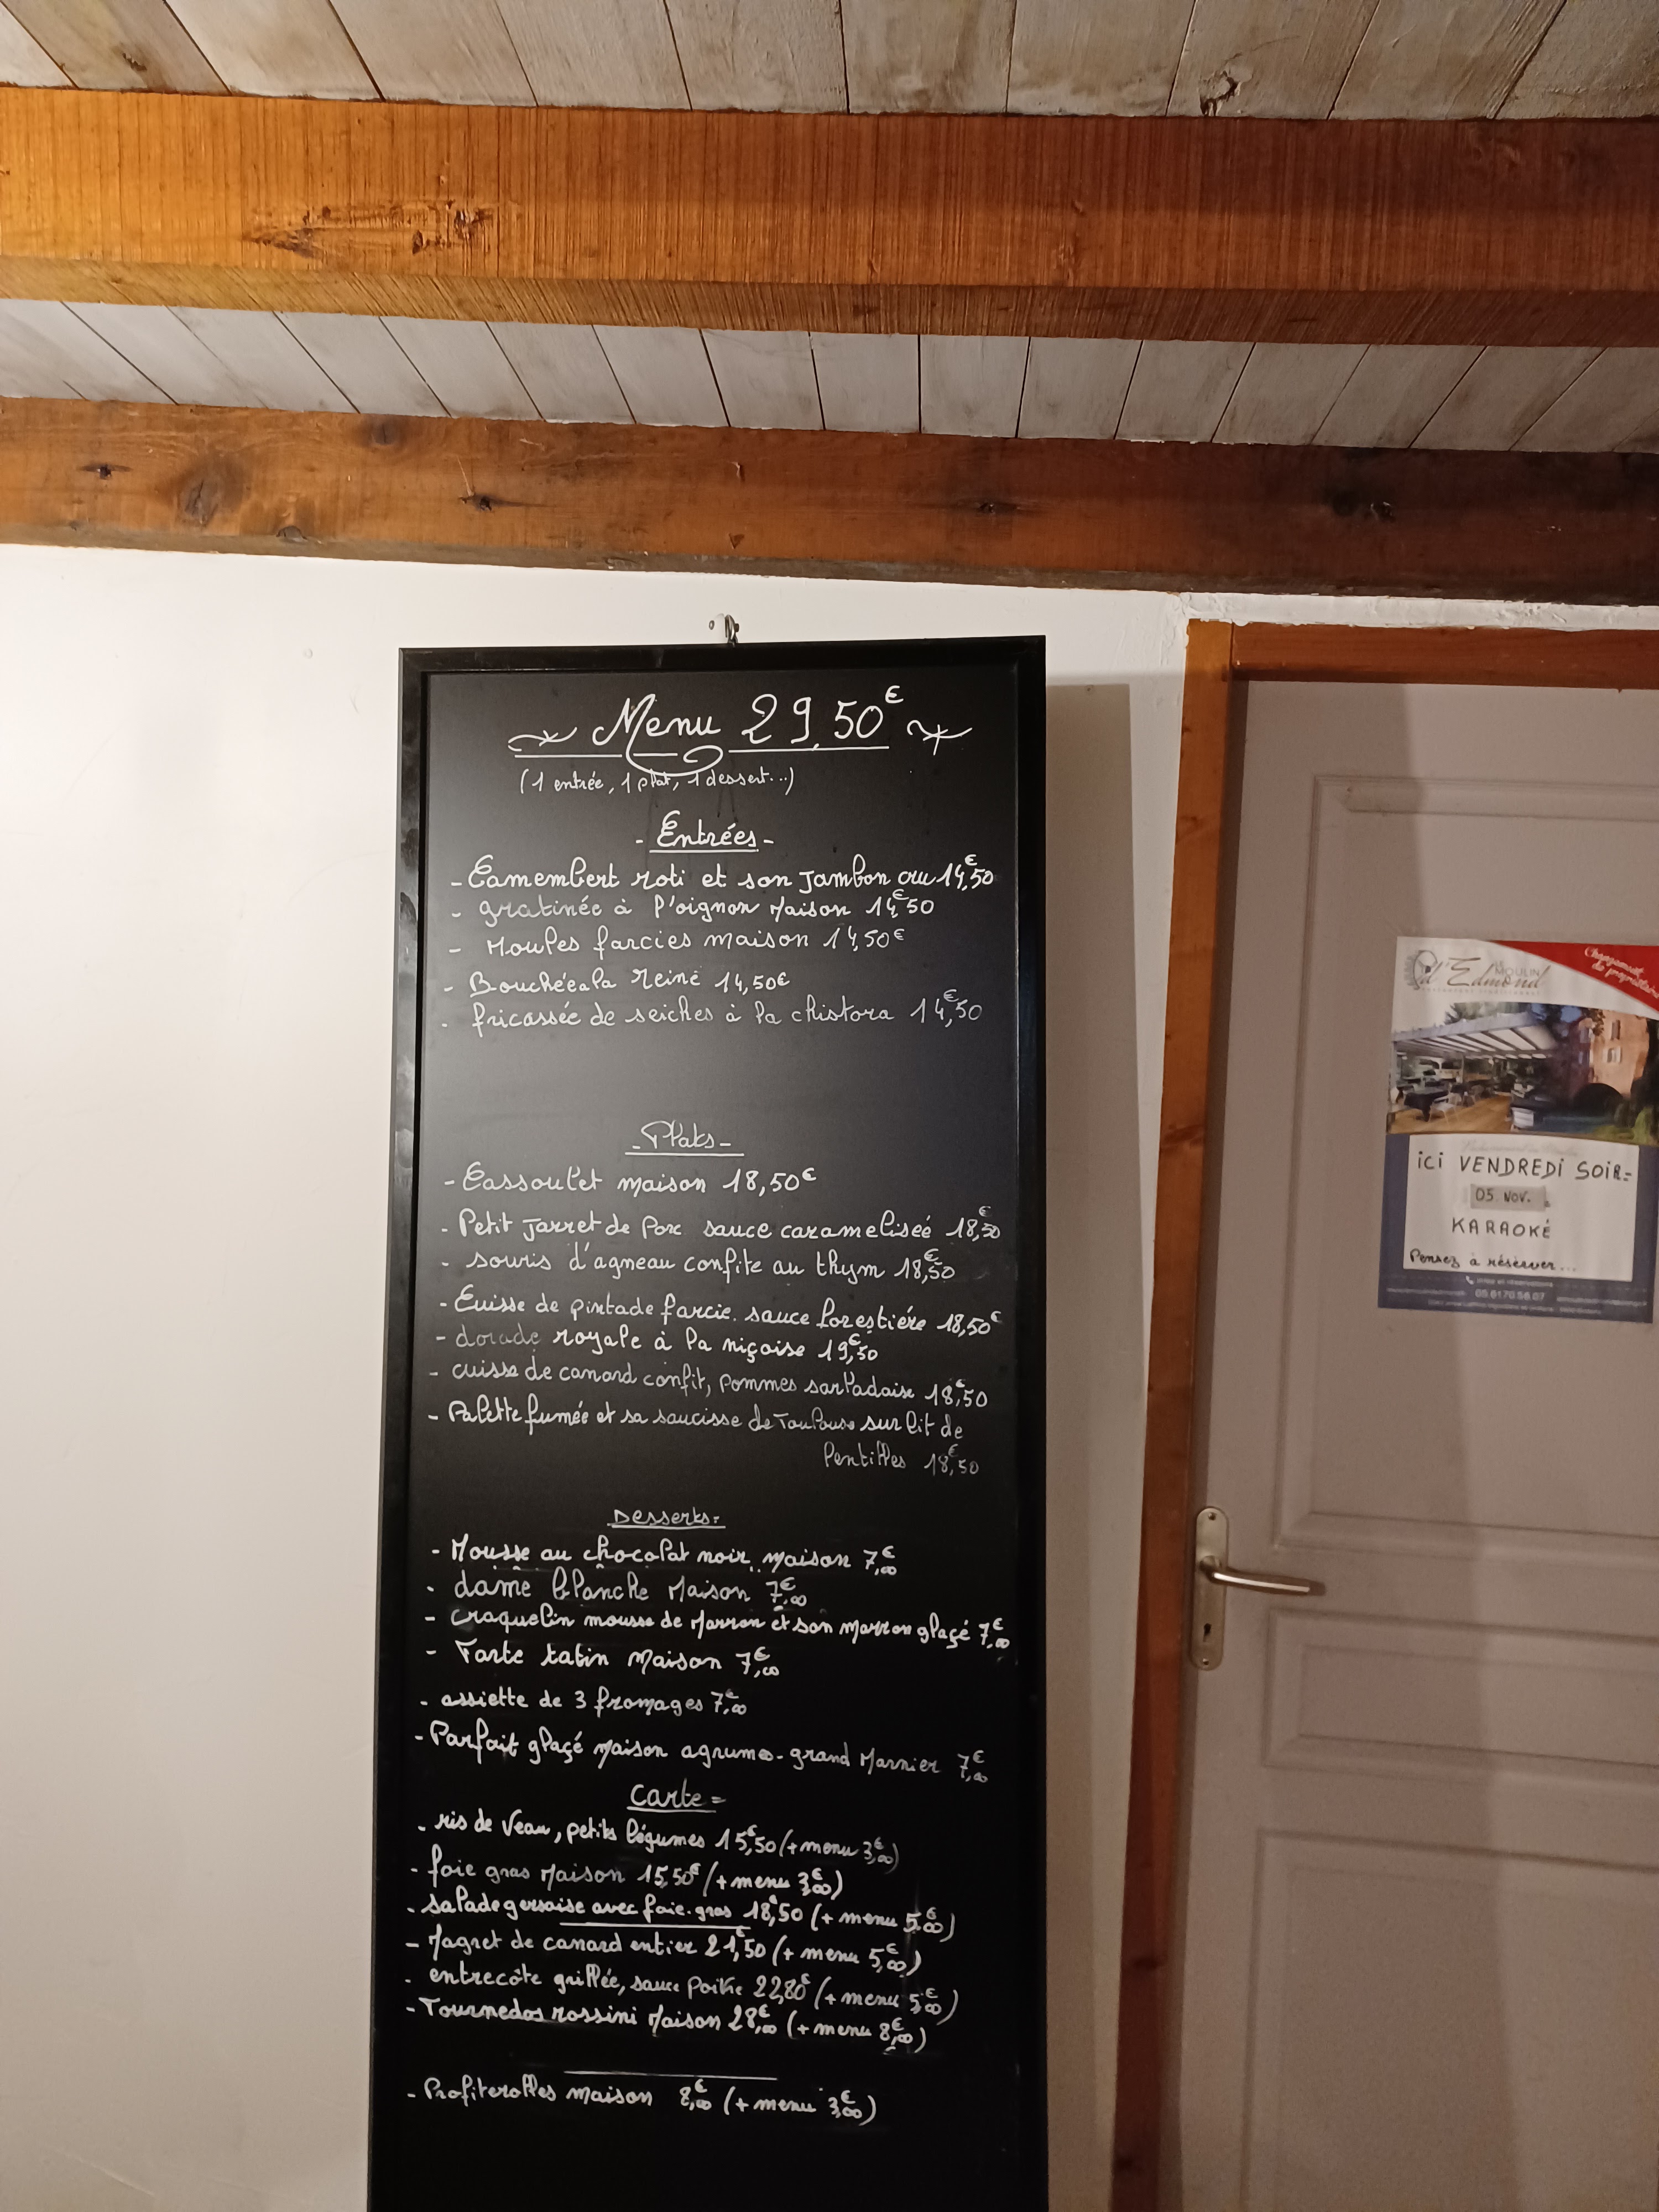 Menu 29,50€
(1 entrée, 1 plat, 1 dessert...)
- Entrées -
- Camembert roti et son Jambon cru 14,50€
- gratinée à l'oignon Maison 14,50€
- Moules farcies maison 14,50€
- Bouchée a la reine 14,50€
- fricassée de seiches à la chistora 14,50€
- Plats -
- Cassoulet maison 18,50€
- Petit Jarret de Porc sauce cameliseé 18,50€
- souris d'agneau confite au thym 18,50€
- Cuisse de pintade farcie. sauce forestiére 18,50€
- dorade royale à la niçoise 19,50€
- cuisse de canard confit, pommes sarladaise 18,50€
- Palette fumée et sa saucisse de Toulouse sur lit de
lentilles 18,50€
Desserts-
- Mousse au chocolat noir maison 7,00€
- dame blanche Maison 7,00€
- craquelin mousse de Marron et son marron glaçé 7,00€
- Tarte tatin Maison 7,00€
- assiette de 3 fromages 7,00€
- Parfait glaçé Maison agrumes-grand Marnier 7,00€
Carte =
- ris de Veau, petits légumes 15,50€ (+ menu 3,00€)
- foie gras Maison 15,50€ (+ menu 3,00€)
- salade gersoise avec foie-gras 18,50€ (+ menu 5,00€)
- Magret de canard entier 21,50€ (+ menu 5,00€)
- entrecôte grillée, sauce poivre 22,80€ (+ menu 5,00€)
- Tournedos rossini Maison 28,00€ (+ menu 8,00€)
- Profiterolles maison 8,00€ (+ menu 3,00€)
Changement de propriétaire
LE MOULIN
d'Edmond
iCi VENDREDI SOIR=
05 NOV.
KARAOKÉ
Pensez à réserver...
05 61 70 56 07